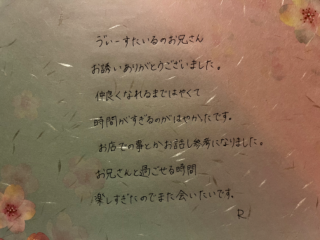 うぃーすたいるのお兄さん
お誘いありがとうございました。
仲良くなれるまではやくて
時間がすぎるのがはやかたです。
お店での事とかお話し参考になりました。
お兄さんと過ごせる時間
楽しすぎたのでまた会いたいです。